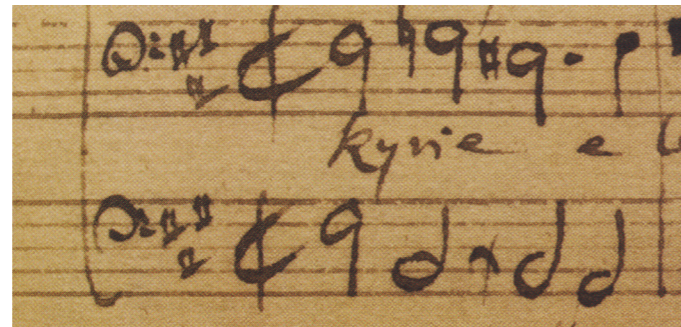 kyrie e l